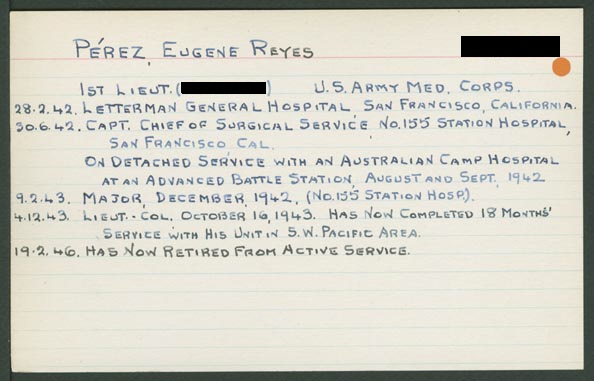 PÉREZ, EUGENE REYES
1ST LIEUT. ( ) U.S. ARMY MED. CORPS.
28.2.42. LETTERMAN GENERAL HOSPITAL, SAN FRANCISCO, CALIFORNIA.
30.6.42. CAPT. CHIEF OF SURGICAL SERVICE, NO.155 STATION HOSPITAL,
SAN FRANCISCO CAL.
ON DETACHED SERVICE WITH AN AUSTRALIAN CAMP HOSPITAL
AT AN ADVANCED BATTLE STATION, AUGUST AND SEPT, 1942
9.2.43. MAJOR, DECEMBER, 1942, (NO.155 STATION HOSP).
4.12.43. LIEUT.-COL. OCTOBER 16, 1943. HAS NOW COMPLETED 18 MONTHS'
SERVICE WITH HIS UNIT IN S.W. PACIFIC AREA.
19.2.46. HAS NOW RETIRED FROM ACTIVE SERVICE.